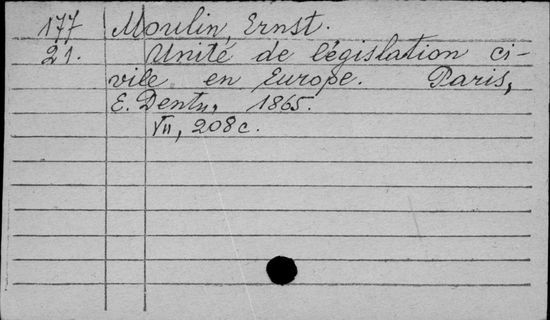 177 Moulin, Ernst.
21. Unité de législation ci-
vile en Europe. Paris,
E. Dentu, 1865.
VII, 208 c.